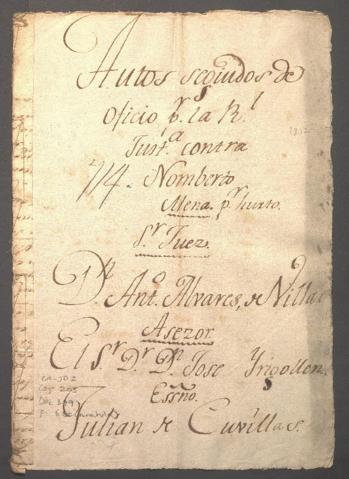 Autos seguidos de
Oficio pr. la Rl
Justa. contra
Nomberto
Mena. pr hurto.
Sr Juez.
Dn. Anto. Alvares, de Villar
Asezor
El Sr. Dr Dn Jose Yrigollen
Essno.
Julian de Cuvillas.
1812
CA-JO2